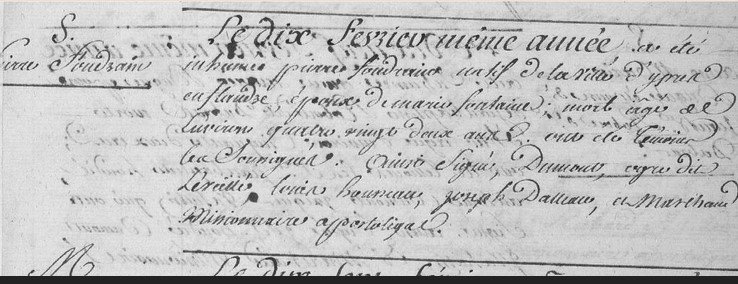 S.
Pierre Foudrain
Le dix Fevrier même année a été
inhumé pierre foudrain natif de la ville d'ypres
en flandre, époux de marie fontaine; mort agé de
Environ quatre vingt douze ans. ont été temoins
les Soussignés. ainsi Signé, Dumont, vigne dit
Léveillé, louis houneau, joseph Dalleau, et Marchand
Missionnaire appostolique
M
Le dix